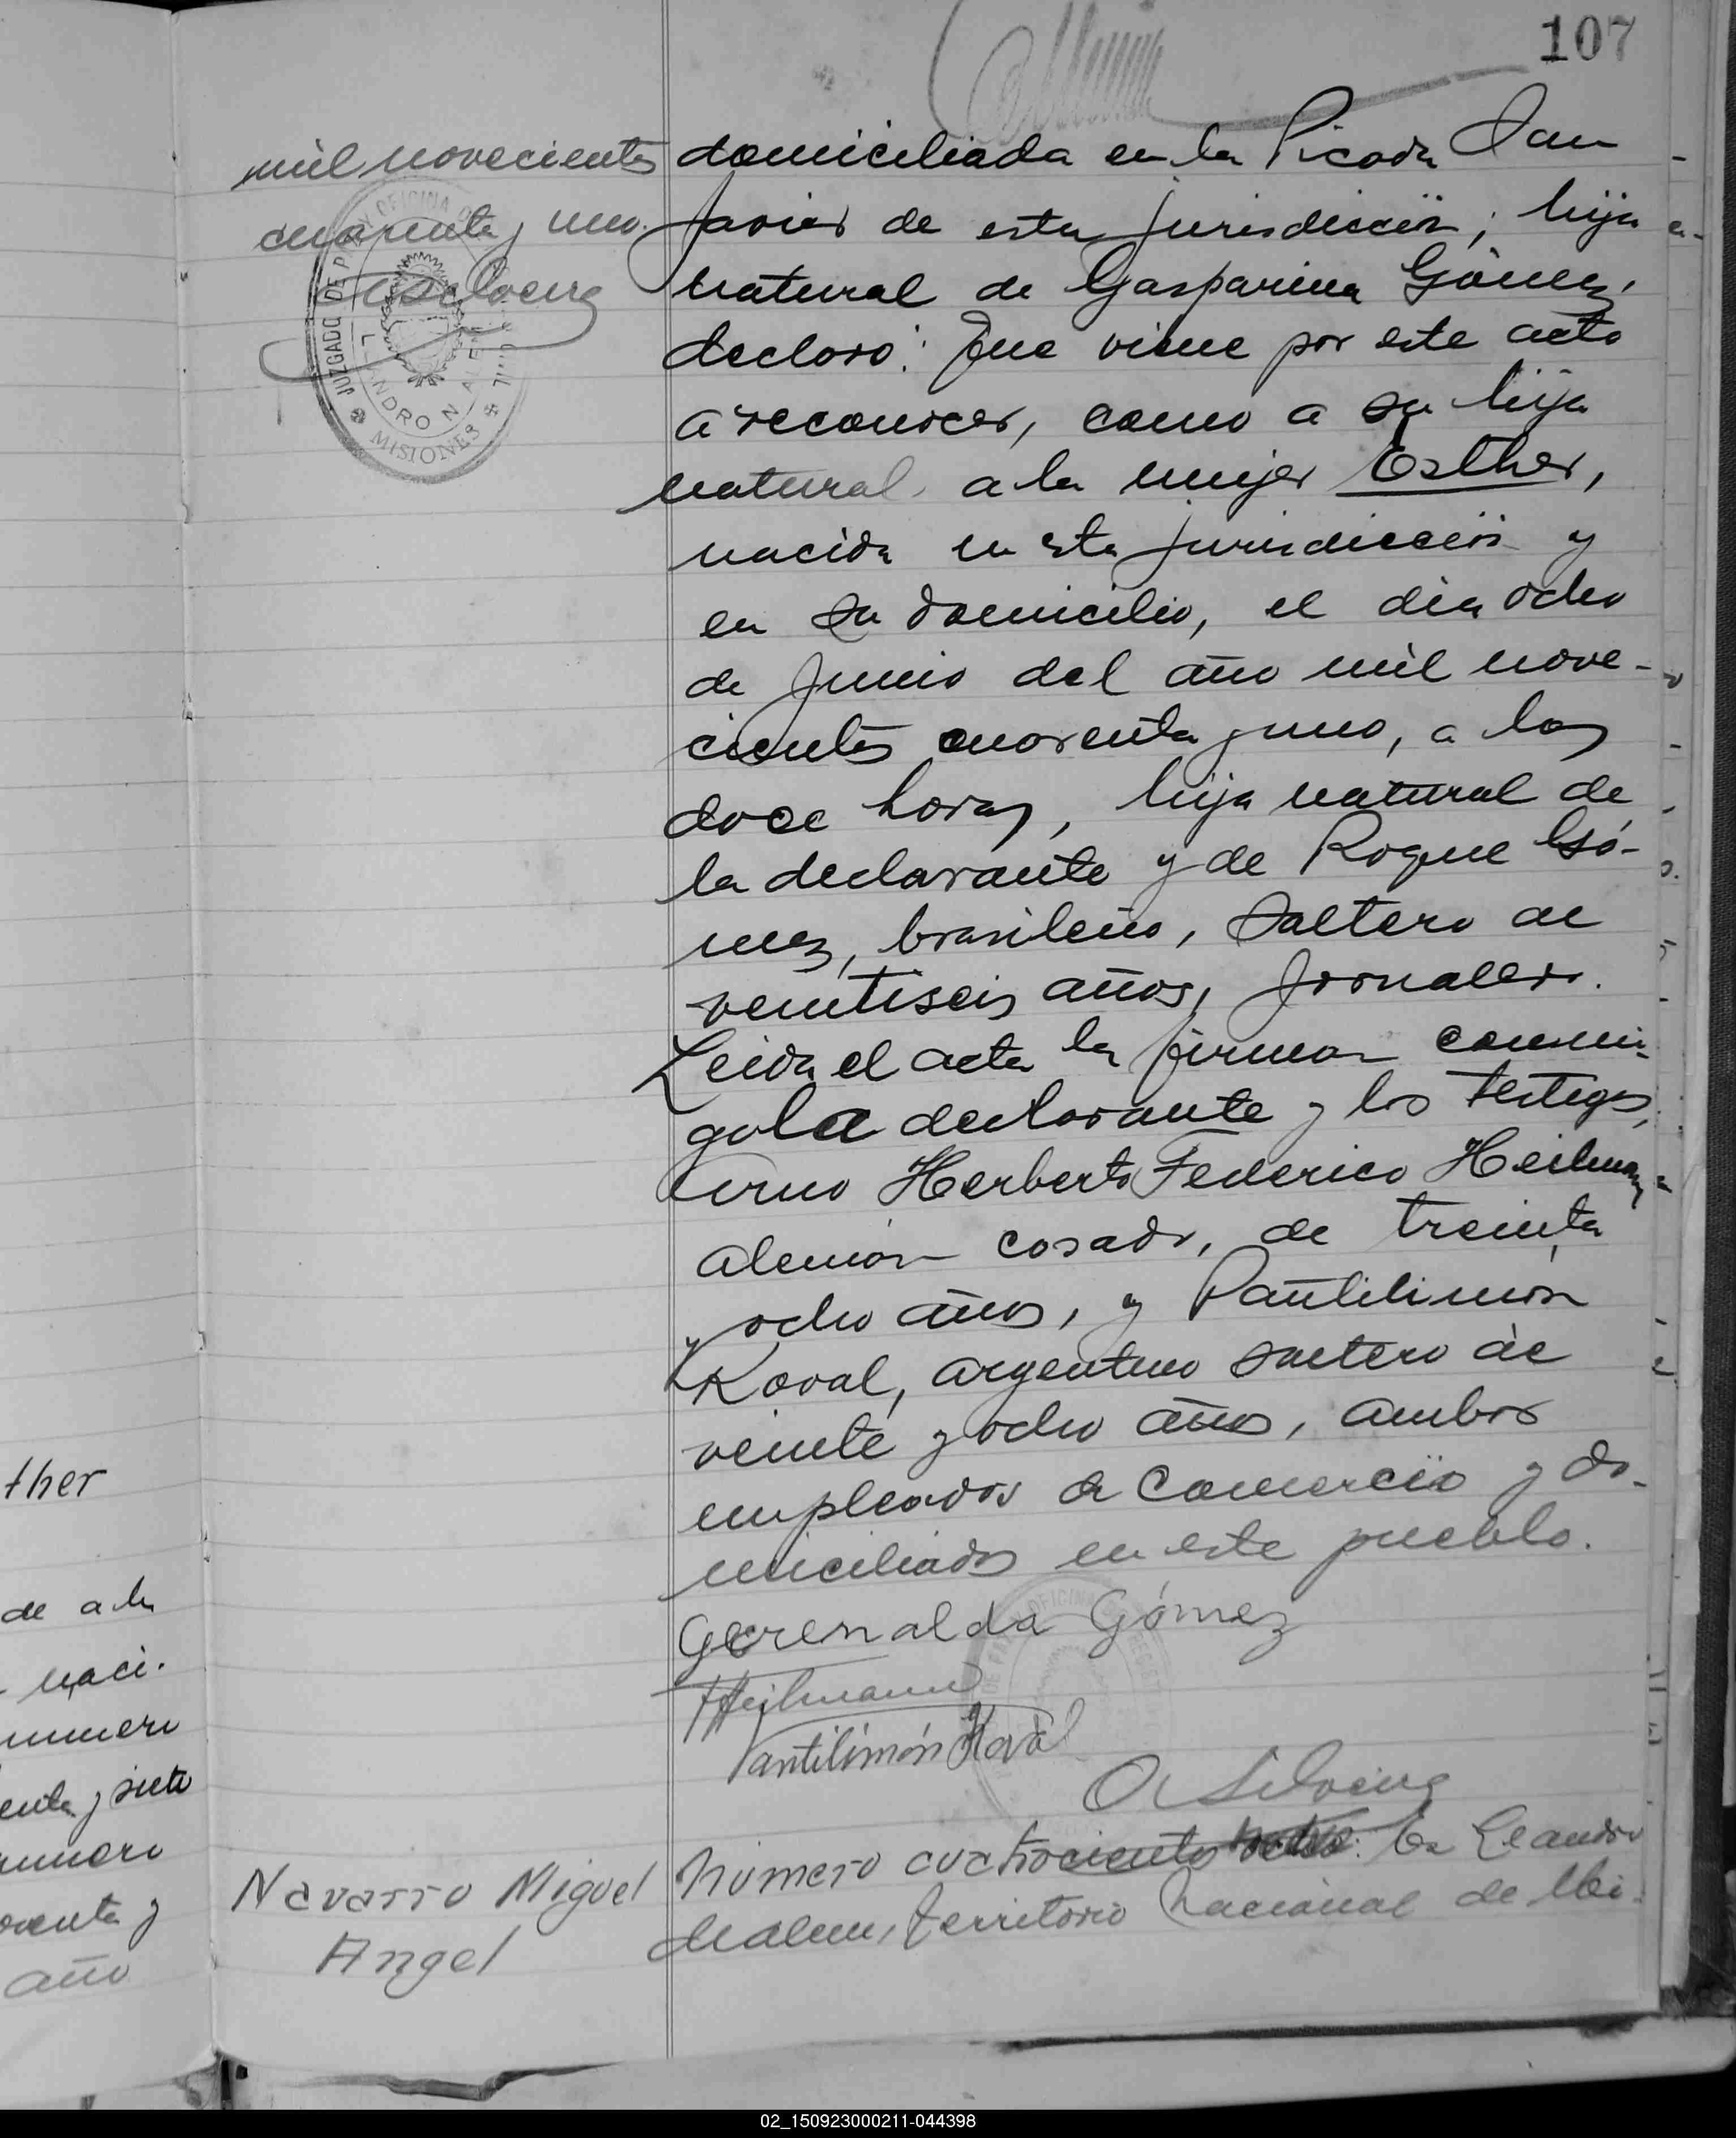 107
mil novecientos
cuarenta y uno.
JUZGADO DE PAZ Y OFICINA
LEANDRO N. ALEM
MISIONES
domiciliada en la Picada San
Javier de esta jurisdicción; hija
natural de Gasparina Gómez,
declaro: Que viene por este acto
a reconocer, como a su hija
natural a la mujer Esther,
nacida en esta jurisdicción y
en su domicilio, el día ocho
de Junio del año mil nove-
cientos cuarenta y uno, a las
doce horas, hija natural de
la declarante y de Roque Gó-
mez, brasileño, soltero de
veintiseis años, jornalero.
Leida el acta la firman conmi-
go la declarante y los testigos,
Herberto Federico Heilmann
alemán casado, de treinta
y ocho años, y Pantilimón
Koval, argentino soltero de
veinte y ocho años, ambos
empleados de comercio y do-
miciliados en este pueblo.
Gerenalda Gómez
Heilmann
Pantilimón Koval
A Silveira
Navarro Miguel
Angel
Número cuatrocientos En Leandro
N. Alem, Territorio Nacional de Mi-
ther
de a la
naci-
numero
enta y siete
numero
arenta y
año
02_150923000211-044398